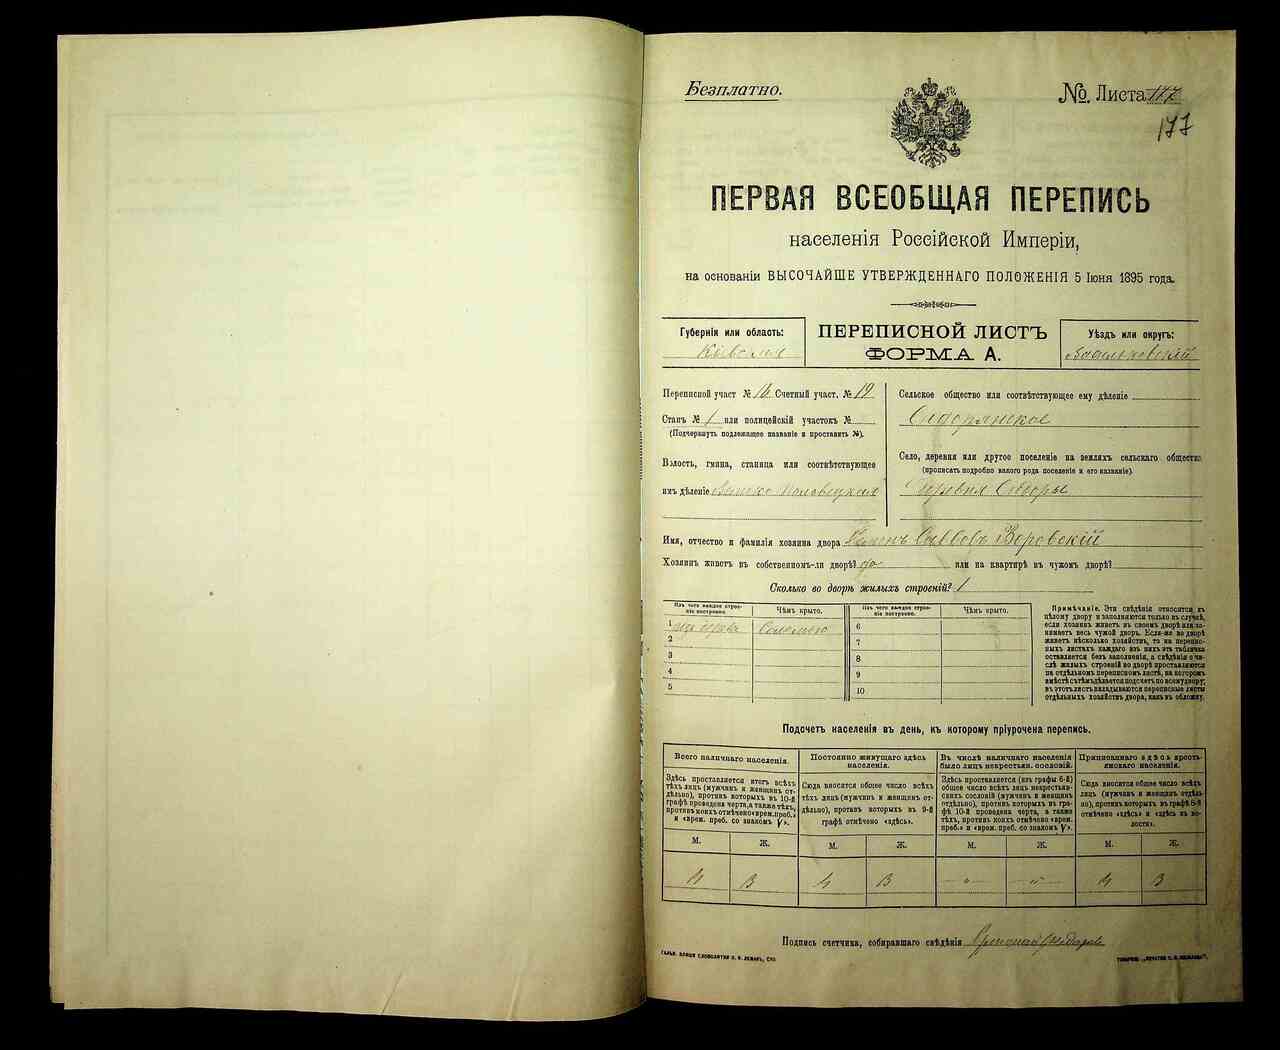 Безплатно.
№. Листа 177
177
ПЕРВАЯ ВСЕОБЩАЯ ПЕРЕПИСЬ
населенія Россійской Имперіи,
на основаніи ВЫСОЧАЙШЕ УТВЕРЖДЕННАГО ПОЛОЖЕНІЯ 5 Іюня 1895 года.
Губернія или область:
Кіевская
ПЕРЕПИСНОЙ ЛИСТЪ
ФОРМА А.
Уѣздъ или округъ:
Васильковскій
Переписной участ № 16 Счетный участ. № 19
Станъ № 1 или полицейскій участокъ №
(Подчеркнуть подлежащее названіе и проставить №).
Волость, гмина, станица или соотвѣтствующее
имъ дѣленіе Велико Половецкая
Сельское общество или соотвѣтствующее ему дѣленіе
Сидорянское
Село, деревня или другое поселеніе на земляхъ сельскаго общества
(прописать подробно какого рода поселеніе и его названіе).
Деревня Сидоры
Имя, отчество и фамилія хозяина двора Саввовъ Воровскій
Хозяинъ живетъ въ собственномъ-ли дворѣ? да или на квартирѣ въ чужомъ дворѣ?
Сколько во дворѣ жилыхъ строеній? 1
Изъ чего каждое строе-
ніе построено.
Чѣмъ крыто.
Изъ чего каждое строе-
ніе построено.
Чѣмъ крыто.
1 изъ дерева Соломою
2
3
4
5
6
7
8
9
10
Примѣчаніе. Эти свѣдѣнія относятся къ
цѣлому двору и заполняются только въ случаѣ,
если хозяинъ живетъ въ своемъ дворѣ или за-
нимаетъ весь чужой дворъ. Если-же во дворѣ
живетъ нѣсколько хозяйствъ, то на перепис-
ныхъ листахъ каждаго изъ нихъ эта табличка
оставляется безъ заполненія, а свѣдѣнія о чи-
слѣ жилыхъ строеній во дворѣ проставляются
на отдѣльномъ переписномъ листѣ, на которомъ
вмѣстѣ съ тѣмъ дѣлается подсчетъ по всему двору;
въ этотъ листъ вкладываются переписные листы
отдѣльныхъ хозяйствъ двора, какъ въ обложку.
Подсчетъ населенія въ день, къ которому пріурочена перепись.
Всего наличнаго населенія.
Здѣсь проставляется итогъ всѣхъ
тѣхъ лицъ (мужчинъ и женщинъ от-
дѣльно), противъ которыхъ въ 10-й
графѣ проведена черта, а также тѣхъ,
противъ коихъ отмѣчено «врем. преб.»
и «врем. преб. со знакомъ V».
Постоянно живущаго здѣсь
населенія.
Сюда вносится общее число всѣхъ
тѣхъ лицъ (мужчинъ и женщинъ от-
дѣльно), противъ которыхъ въ 9-й
графѣ отмѣчено «здѣсь».
Въ числѣ наличнаго населенія
было лицъ некрестьян. сословій.
Здѣсь проставляется (изъ графы 6-й)
общее число всѣхъ лицъ некрестьян-
скихъ сословій (мужчинъ и женщинъ
отдѣльно), противъ которыхъ въ гра-
фѣ 10-й проведена черта, а также
тѣхъ, противъ коихъ отмѣчено «врем.
преб.» и «врем. преб. со знакомъ V».
Приписаннаго здѣсь кресть-
янскаго населенія.
Сюда вносится общее число всѣхъ
лицъ (мужчинъ и женщинъ отдѣль-
но), противъ которыхъ въ графѣ 8-й
отмѣчено «здѣсь» и «здѣсь въ во-
лости».
М. Ж. М. Ж. М. Ж. М. Ж.
4 3 4 3 - " - - " - 4 3
Подпись счетчика, собиравшаго свѣдѣнія